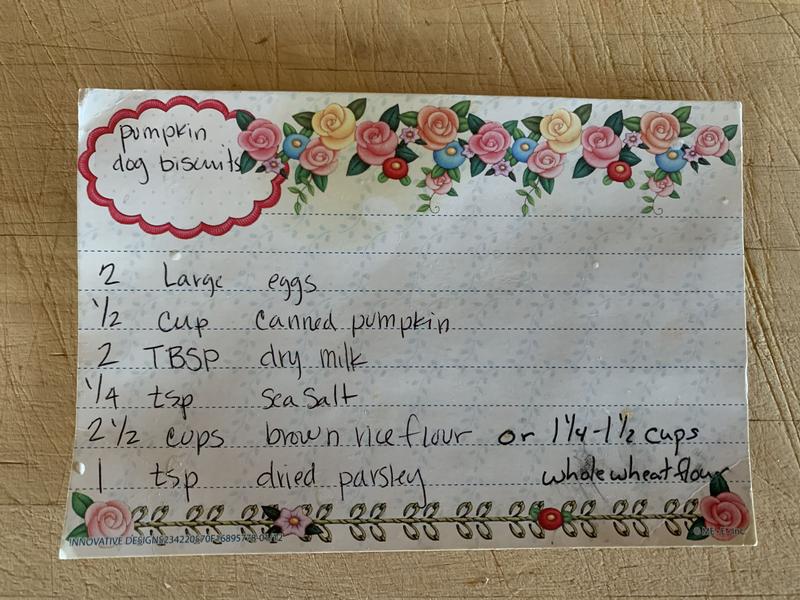 pumpkin
dog biscuits
2 Large eggs
1/2 cup canned pumpkin
2 TBSP dry milk
1/4 tsp sea salt
2 1/2 cups brown rice flour or 1 1/4-1 1/2 cups
1 tsp dried parsley whole wheat flour
INNOVATIVE DESIGNS